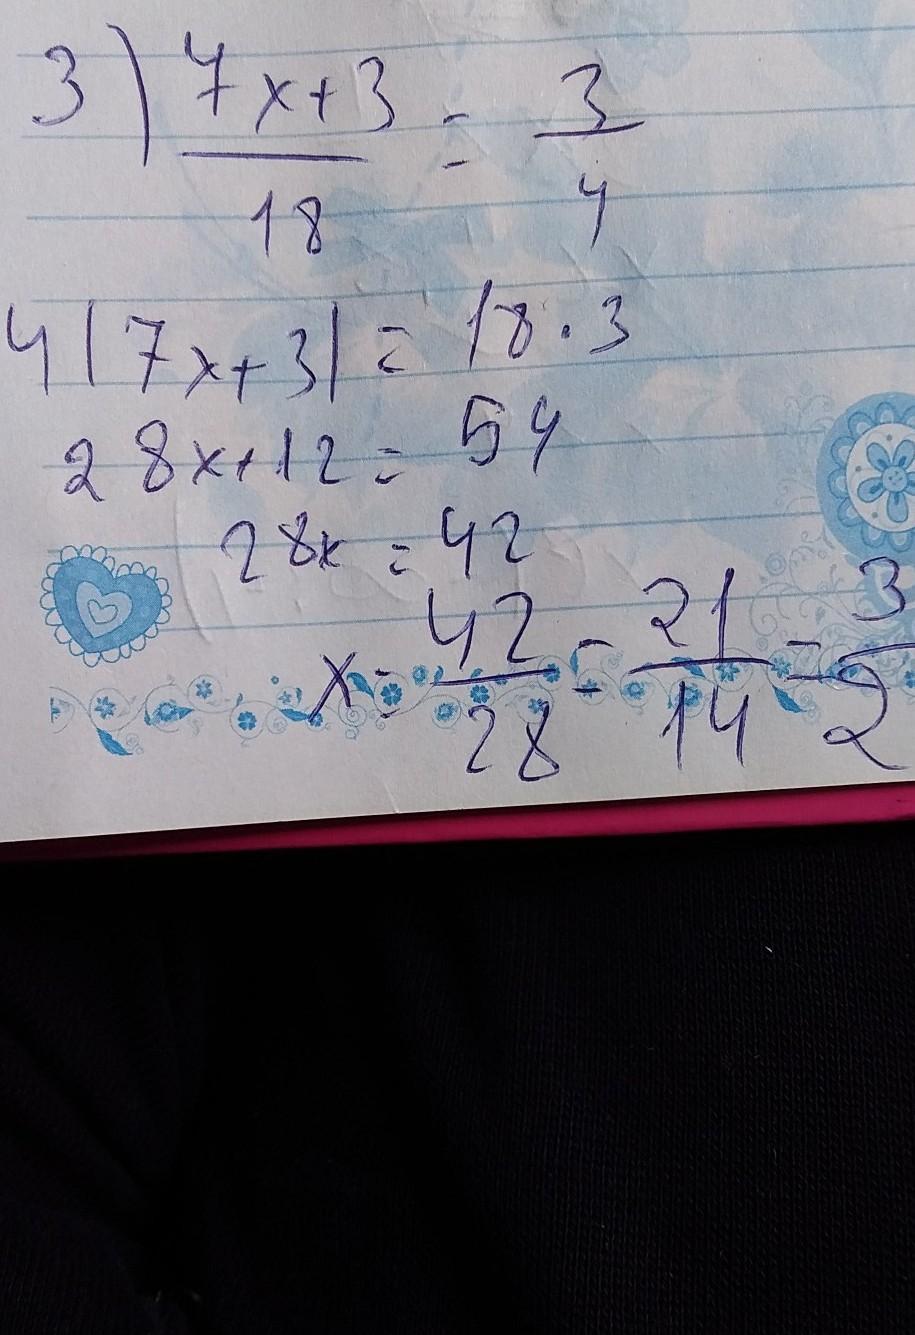 3) 7x+3/18 = 3/4
4(7x+3) = 18·3
28x+12 = 54
28x = 42
x = 42/28 = 21/14 = 3/2